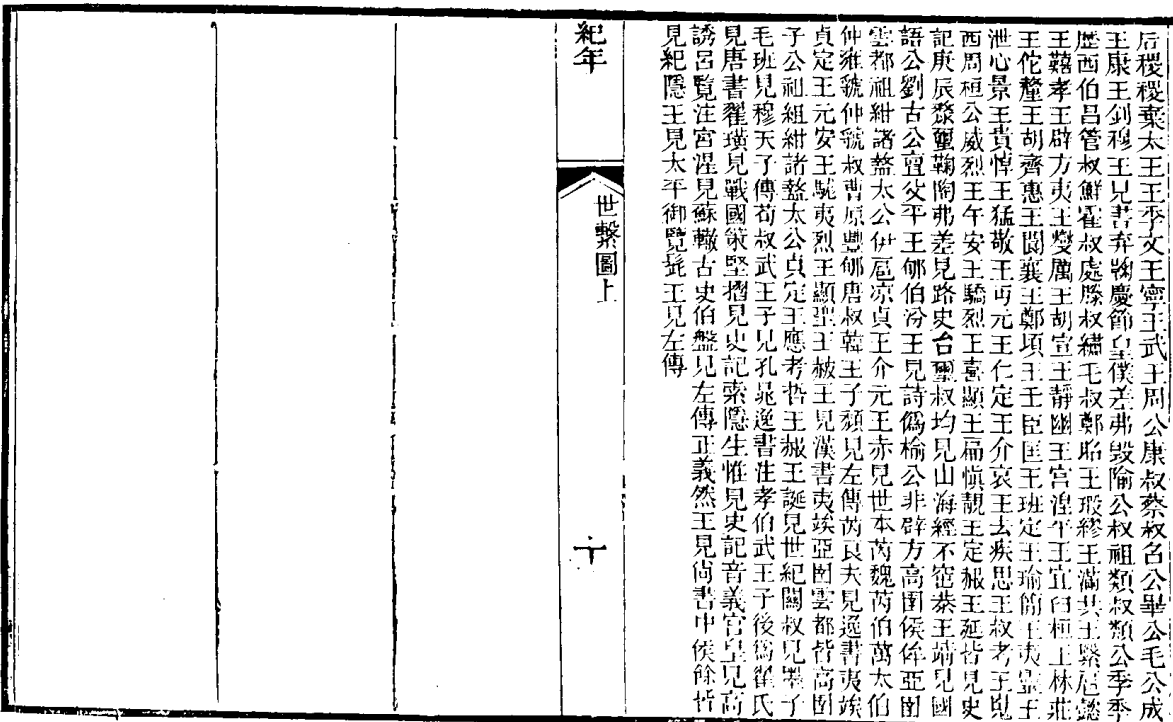 后稷稷棄太王王季文王寧王武王周公康叔蔡叔名公畢公毛公成
王康王釗穆王見書弃鞠慶節皇僕差弗毀隃公叔祖類叔類公季季
歷西伯昌管叔鮮霍叔處滕叔繡毛叔鄭昭王瑕繆王滿共王繄扈懿
王囏孝王辟方夷王燮厲王胡宣王靜幽王宮湼平王宜臼桓王林莊
王佗釐王胡齊惠王閬襄王鄭頃王壬臣匡王班定王瑜簡王夷靈王
泄心景王貴悼王猛敬王丐元王仁定王介哀王去疾思王叔考王嵬
西周桓公威烈王午安王驕烈王喜顯王扁慎靚王定赧王延皆見史
記庚辰漦璽鞠陶弗差見路史台璽叔均見山海經不窋恭王瑦見國
語公劉古公亶父平王郇伯汾王見詩僞榆公非辟方高圉侯侔亞圉
雲都祖紺諸盩太公伊扈凉貞王介元王赤見世本芮魏芮伯萬太伯
仲雍虢仲虢叔曹原豐郇唐叔韓王子頹見左傳芮良夫見逸書夷竢
貞定王元安王駣夷烈王顯聖王赧王見漢書夷竢亞圉雲都皆高圉
子公祖組紺諸盩太公貞定王應考哲王赧王誕見世紀關叔見墨子
毛班見穆天子傳荀叔武王子見孔晁逸書注孝伯武王子後爲翟氏
見唐書翟璜見戰國策堅揩見史記索隱生惟見史記音義宮皇見高
誘呂覽注宮湼見蘇轍古史伯盤見左傳正義然王見尙書中候餘皆
見紀隱王見太平御覽髭王見左傳
紀年
世繫圖上
十